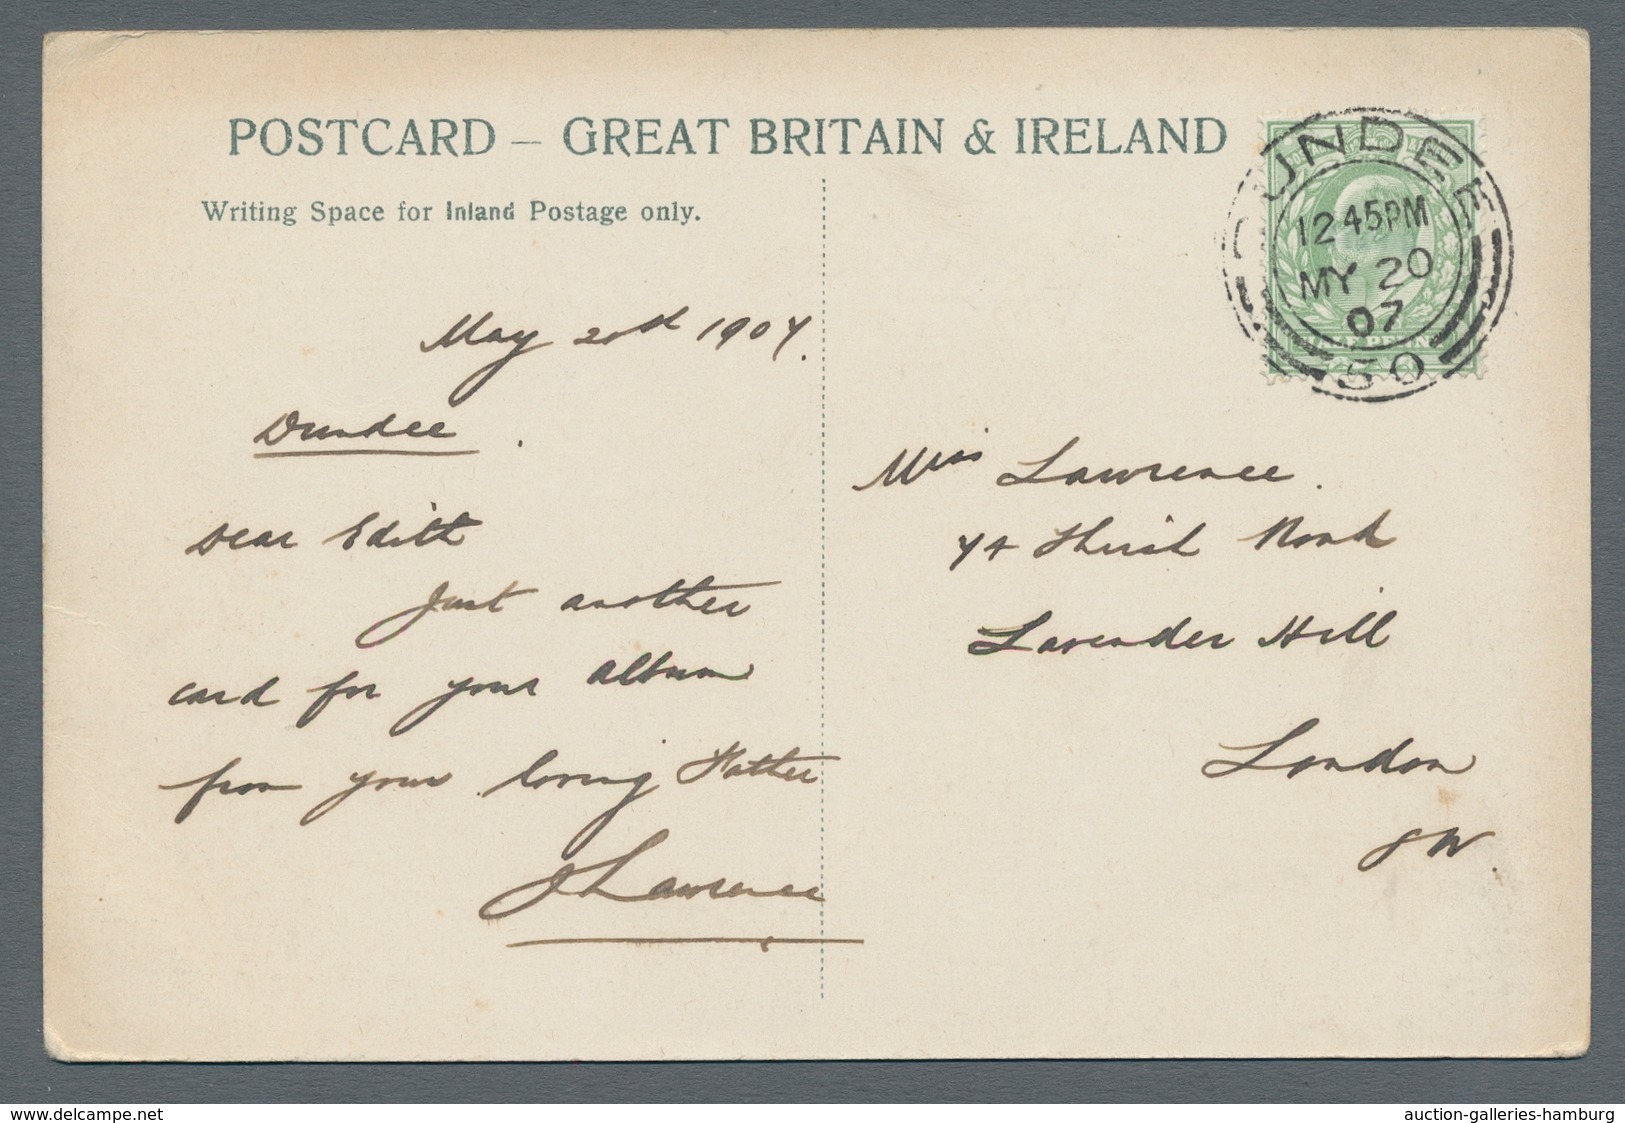 POSTCARD – GREAT BRITAIN & IRELAND
Writing Space for Inland Postage only.
DUNDEE
12 45PM
MY 20
07
50
May 20th 1907.
Dundee.
Dear Edith
Just another
card for your album
from your loving Father
J Lawrence
Miss Lawrence.
74 Road
Lavender Hill
London
SW.
www.delcampe.net
auction-galleries-hamburg